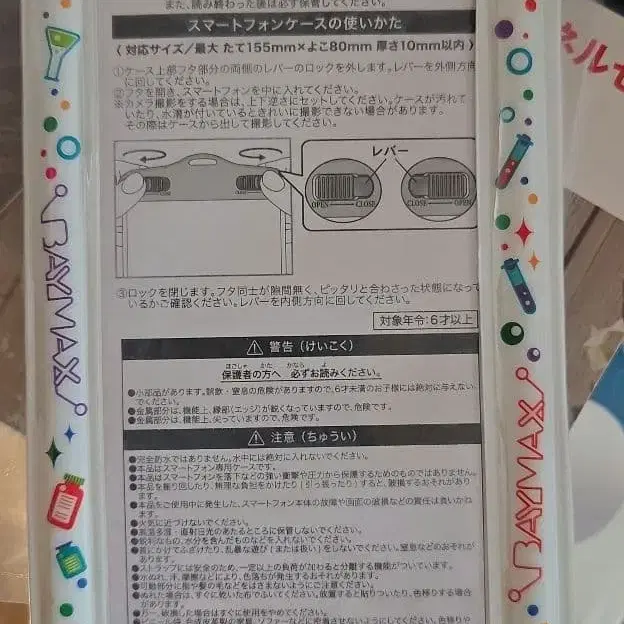 また、読み終わった後は必ず保管してください。
スマートフォンケースの使いかた
〈 対応サイズ／最大 たて155mm×よこ80mm 厚さ10mm以内 〉
①ケース上部フタ部分の両側のレバーのロックを外します。レバーを外側方向
に回してください。
②フタを開き、スマートフォンを中に入れてください。
※カメラ撮影をする場合は、上下逆さにセットしてください。ケースが汚れて
いたり、水滴が付いているときれいに撮影できない場合があります。
その際はケースから出して撮影してください。
レバー
OPEN CLOSE
CLOSE OPEN
③ロックを閉じます。フタ同士が隙間無く、ピッタリと合わさった状態になって
いるかご確認ください。レバーを内側方向に回してください。
対象年令:6才以上
⚠ 警告（けいこく）
保護者の方へ 必ずお読みください。
●小部品があります。誤飲・窒息の危険がありますので、6才未満のお子様には絶対に与えない
でください。
●金属部分は、機能上、縁部(エッジ)が鋭くなっていますので、危険です。
●金属部分は、機能上、尖っていますので、危険です。
⚠ 注意（ちゅうい）
●完全防水ではありません。水中には絶対に入れないでください。
●本品はスマートフォン専用ケースです。
●本品はスマートフォンを落下などの強い衝撃や圧力から保護するためのものではありません。
●本品を振り回したり、無理な負担をかけたり(引っ張ったり)すると、破損するおそれがあり
ます。
●本品をご使用中に発生した、スマートフォン本体の故障や画面の破損などの責任は負いかね
ます。
●火気に近づけないでください。
●高温多湿・直射日光のあたるところに保管しないでください。
●鋭利なもの、水分を含んだものなどを入れないでください。
●首にかけてふざけたり、乱暴な遊び(または扱い)をしないでください。窒息などのおそれが
あります。
●ストラップには安全のため、一定以上の負荷が加わると分離する機能がついています。
●水ぬれ、汗、摩擦などにより、色落ちが発生するおそれがあります。
●可動部分に指や髪の毛などをはさまないようにご注意ください。
●ぬれた場合は、すぐに乾いた布でふいてください。放置すると貼りついたり、色移りする場合
があります。
●万一、破損した場合はすぐに使用をやめてください。
●ビニール袋、合成皮革製の家具、ソファーなどに密着させないようにしてください。色移りや
BAYMAX
BAYMAX
ネルセ